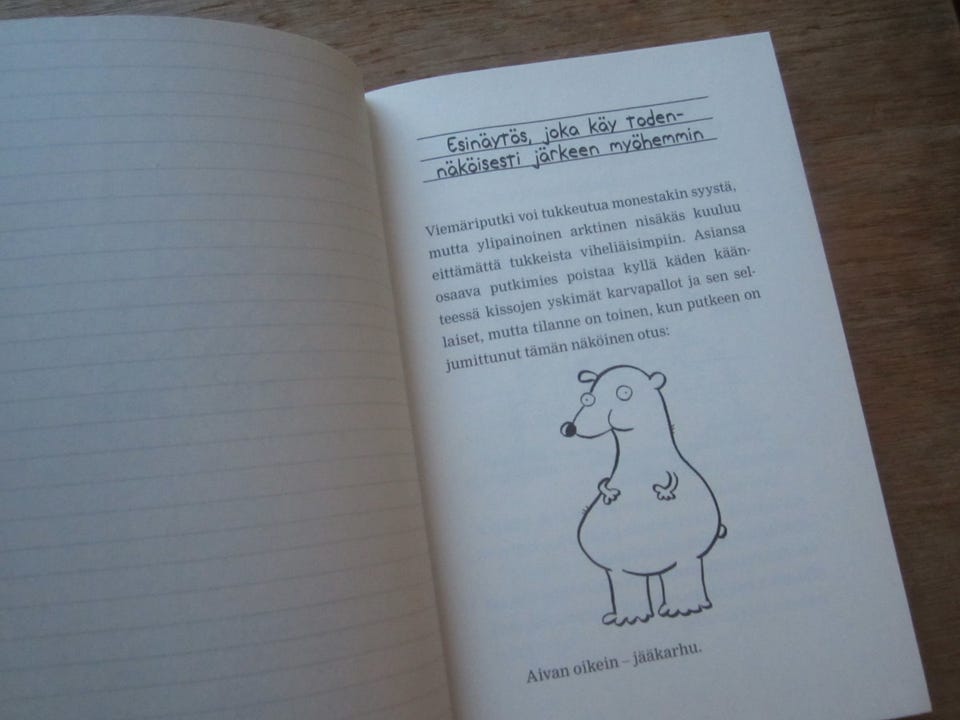 Esinäytös, joka käy toden-
näköisesti järkeen myöhemmin
Viemäriputki voi tukkeutua monestakin syystä,
mutta ylipainoinen arktinen nisäkäs kuuluu
eittämättä tukkeista viheliäisimpiin. Asiansa
osaava putkimies poistaa kyllä käden kään-
teessä kissojen yskimät karvapallot ja sen sel-
laiset, mutta tilanne on toinen, kun putkeen on
jumittunut tämän näköinen otus:
Aivan oikein – jääkarhu.